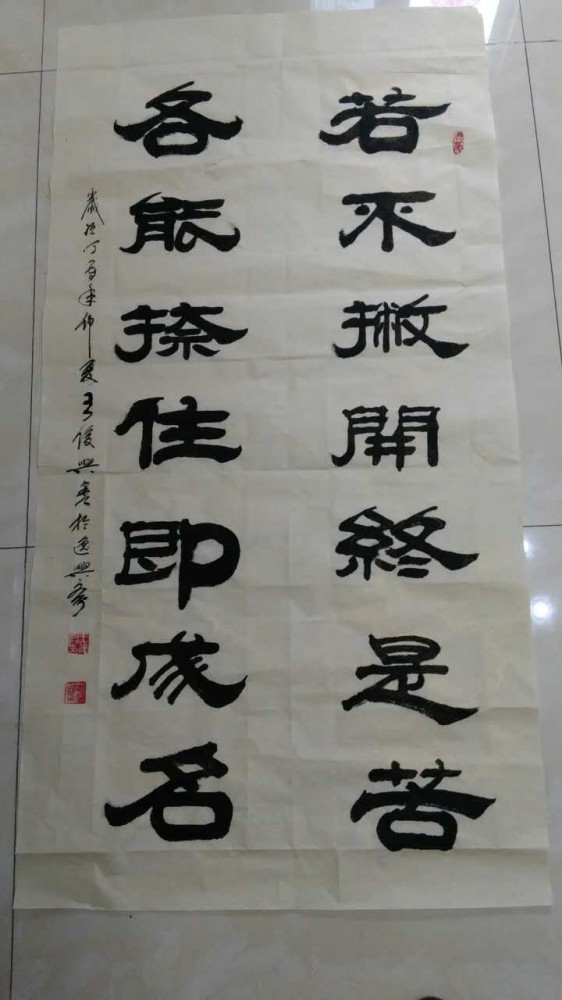 若不撇開終是苦
各能捺住即成名
歲次丁酉年仲夏王俊興書於逸興齋